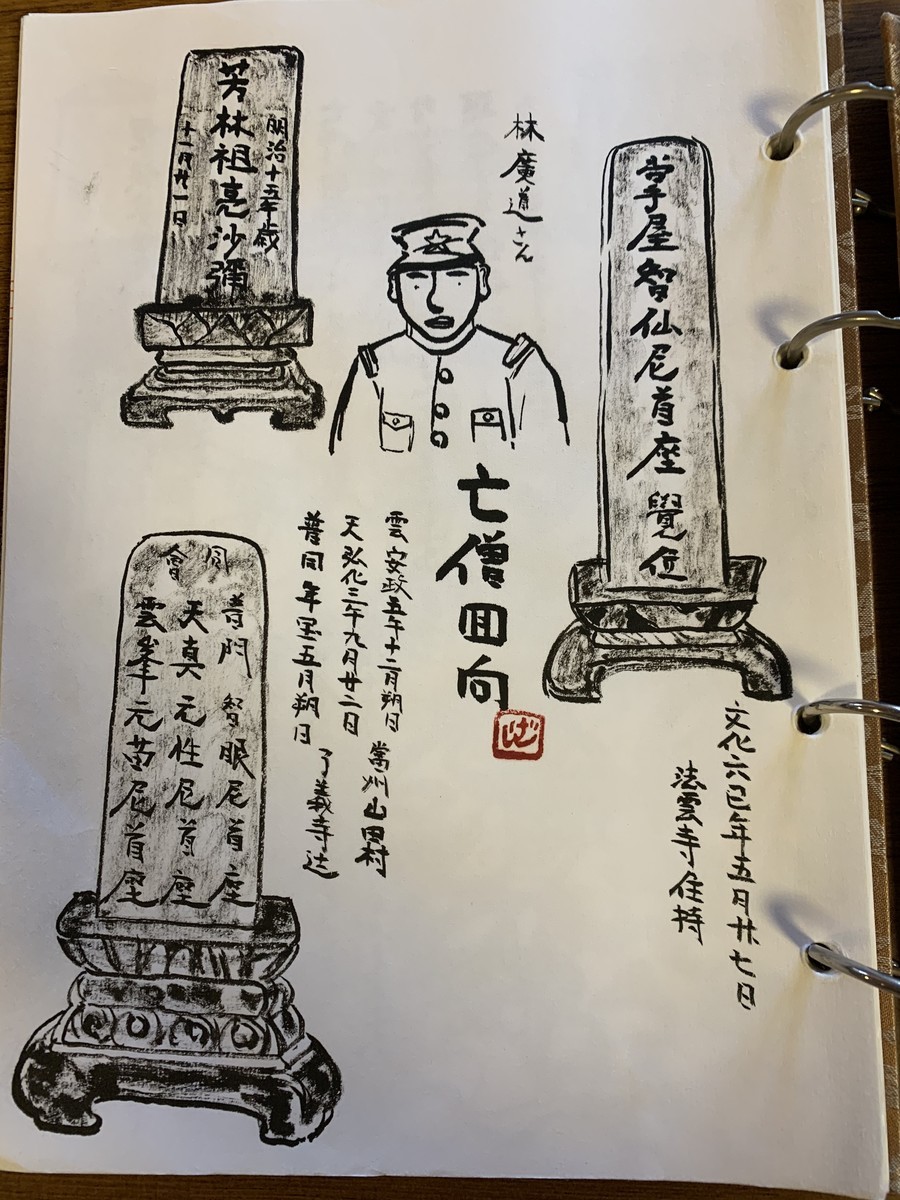 掌屋智仙尼首座 覺位
文化六巳年五月廿七日
法雲寺住持
林廣道さん
亡僧回向
雲安政五午十二月朔日 常州山田村
天弘化三午九月廿二日
普同年五月朔日 了義寺辻
明治十五年歳
芳林祖亮沙彌
十一月廿一日
同會
普門智眼尼首座
天真元性尼首座
雲峯元苗尼首座